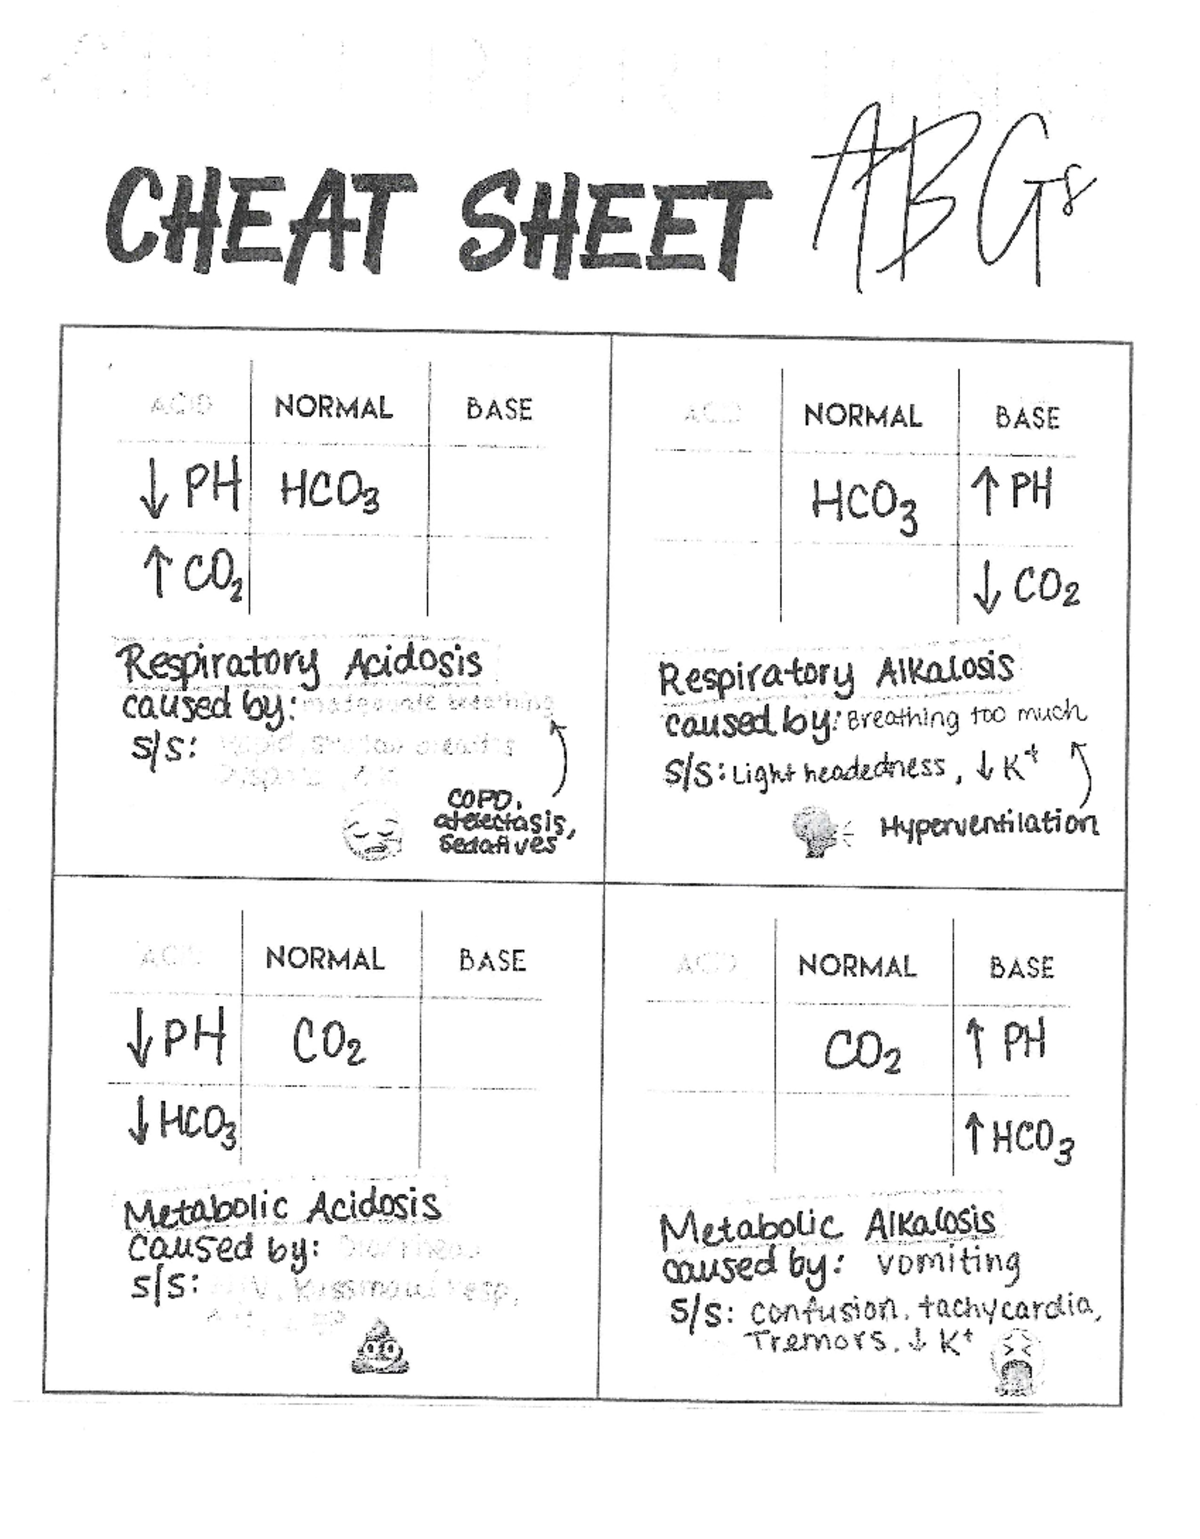 CHEAT SHEET ABGs
ACID NORMAL BASE
↓ PH HCO3
↑ CO2
Respiratory Acidosis
caused by:
S/S:
COPD,
atelectasis,
Sedatives
ACID NORMAL BASE
HCO3 ↑ PH
↓ CO2
Respiratory Alkalosis
caused by: Breathing too much
S/S: Light headedness, ↓ K+
Hyperventilation
ACID NORMAL BASE
↓ PH CO2
↓ HCO3
Metabolic Acidosis
caused by: Diarrhea
S/S: Kussmaul resp,
ACID NORMAL BASE
CO2 ↑ PH
↑ HCO3
Metabolic Alkalosis
caused by: vomiting
S/S: confusion, tachycardia,
Tremors, ↓ K+